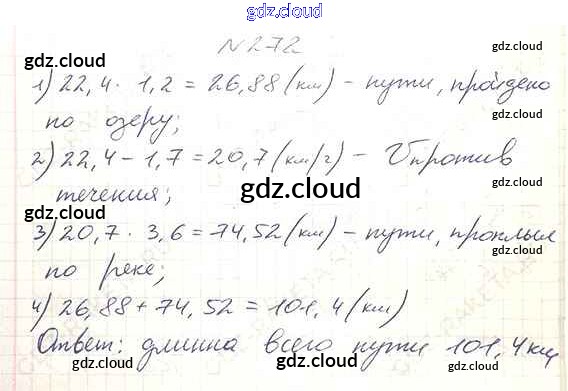 gdz.cloud
N 272
gdz.cloud gdz.cloud
1) 22,4 · 1,2 = 26,88 (км) - пути, пройдено
gdz.cloud gdz.cloud
по озеру;
2) 22,4 - 1,7 = 20,7 (км/г) - V против
gdz.cloud
течения;
gdz.cloud gdz.cloud
3) 20,7 · 3,6 = 74,52 (км) - пути, проплыл
по реке;
gdz.cloud gdz.cloud
4) 26,88 + 74,52 = 101,4 (км)
Ответ: длинна всего пути 101,4 км
gdz.cloud gdz.cloud
gdz.cloud